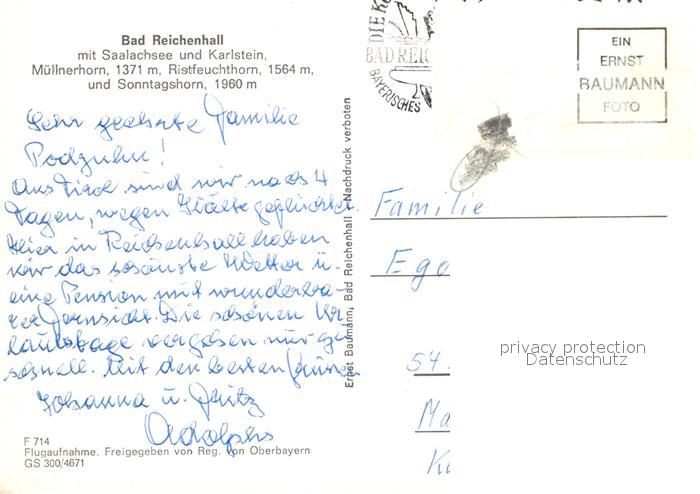 Bad Reichenhall
mit Saalachsee und Karlstein,
Müllnerhorn, 1371 m, Ristfeuchthorn, 1564 m,
und Sonntagshorn, 1960 m
Sehr geehrte Familie
Podzuhn!
Aus Tirol sind wir nach 4
Tagen, wegen Kälte geflüchtet.
Hier in Reichenhall haben
wir das schönste Wetter u.
eine Pension mit wunderba-
rer Fernsicht. Die schönen Ur
laubstage vergehen nur zu
schnell. Mit den besten Grüssen
Johanna u. Fritz
Adolphs
F 714
Flugaufnahme. Freigegeben von Reg. von Oberbayern
GS 300/4671
Ernst Baumann, Bad Reichenhall - Nachdruck verboten
BAD REIC
BAYERISCHES
EIN
ERNST
BAUMANN
FOTO
Familie
Ego
54
Ma
privacy protection
Datenschutz